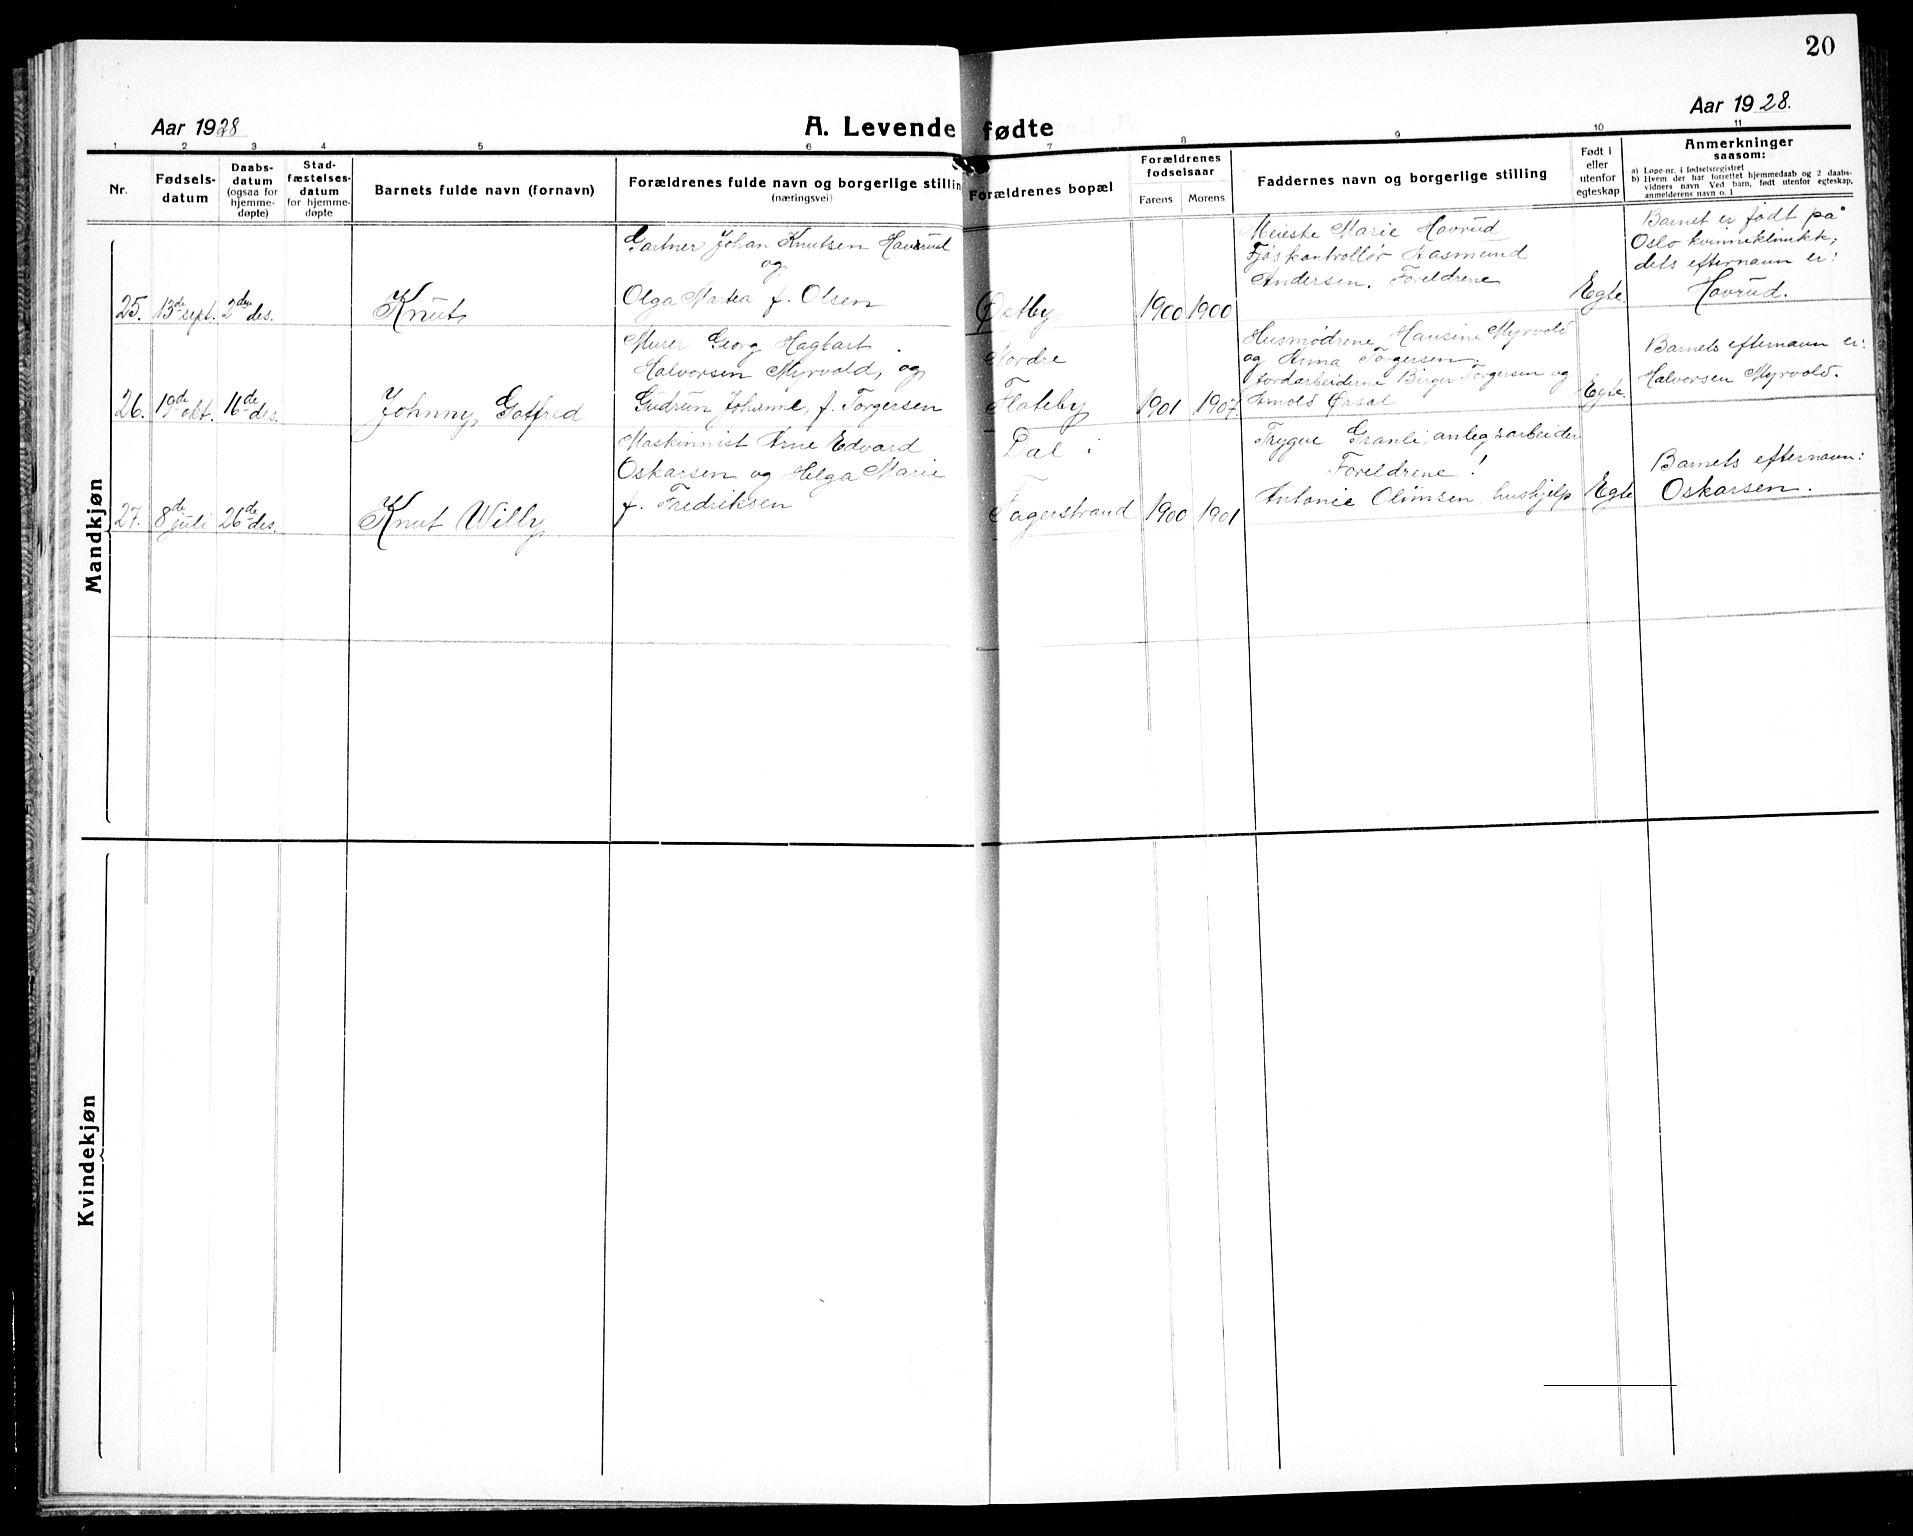 20
Aar 1928
A. Levende fødte
Aar 1928.
1 2 3 4 5 6 7 8 9 10 11
Nr.
Fødsels-
datum
Daabs-
datum
(ogsaa for
hjemme-
døpte)
Stad-
fæstelses-
datum
for hjemme-
døpte
Barnets fulde navn (fornavn)
Forældrenes fulde navn og borgerlige stilling
(næringsvei)
Forældrenes bopæl
Forældrenes
fødselsaar
Farens Morens
Faddernes navn og borgerlige stilling
Født i
eller
utenfor
egteskap
Anmerkninger
saasom:
a) Løpe-nr. i fødselsregistret
b) Hvem der har forrettet hjemmedaab og 2 daabs-
vidners navn Ved barn, født utenfor egteskap,
anmelderens navn o. l
Mandkjøn
25. 13de sept. 2den des.
Knut
Gartner Johan Knutsen Havrud
og
Olga Martea f. Olsen
Østby
1900 1900
Meieske Marie Havrud
Fjøskontrollør Aasmund
Andersen. Foreldrene
Egte.
Barnet er født på
Oslo kvinneklinikk;
dets efternavn er:
Hovrud.
26. 19de okt. 16de des.
Johnny Gotfred
Murer Georg Hagbart
Halvorsen Myrvold, og
Gudrun Johanne, f. Torgersen
Nordre
Flateby
1901 1907
Husmødrene Hansine Myrvold
og Anna Torgersen.
Jordarbeiderne Birger Torgersen og
Arnold Ørsal
Egte.
Barnets efternavn er:
Halvorsen Myrvold.
27. 8de juli 26de des.
Knut Willy
Maskinmist Arne Edvard
Oskarsen og Helga Marie
f. Fredriksen
Dal i
Fagerstrand
1900 1901
Trygve Granli, anlegsarbeider
Foreldrene!
Antonie Olimsen, hushjelp
Egte
Barnets efternavn:
Oskarsen.
Kvindekjøn